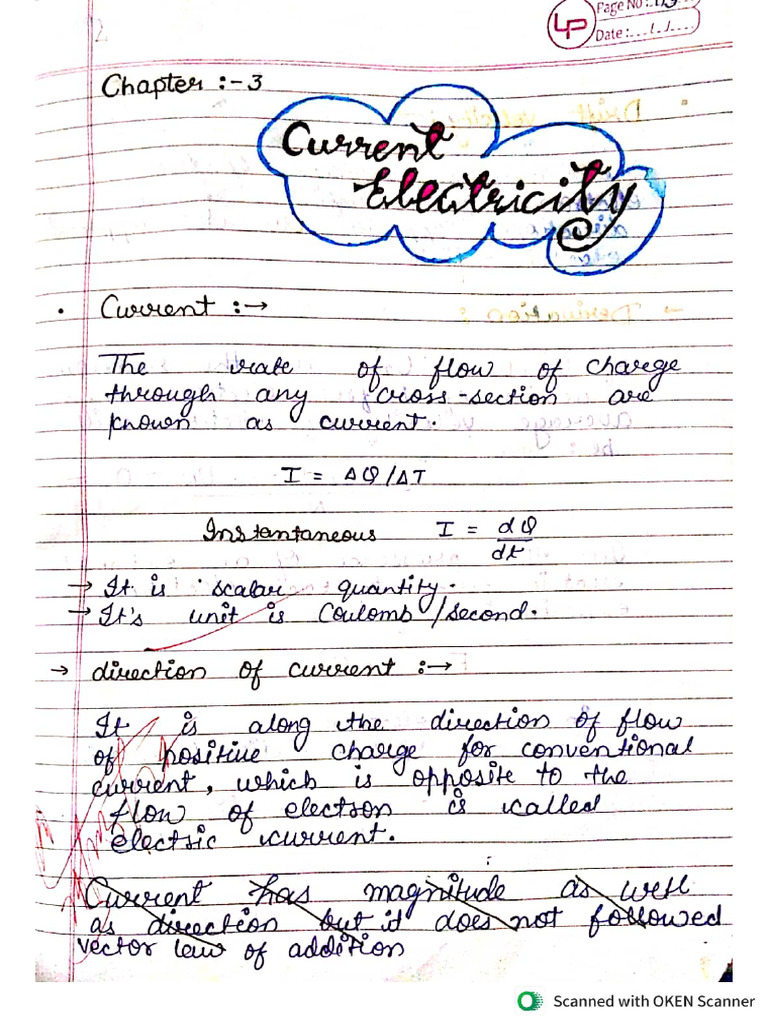 Page No :
LP
Date :
Chapter :- 3
Current
Electricity
• Current :→
The rate of flow of charge
through any cross-section are
known as current.
I = ΔQ/ΔT
Instantaneous I = dQ/dt
→ It is scalar quantity.
→ It's unit is Coulomb/second.
→ direction of current :→
It is along the direction of flow
of positive charge for conventional
current, which is opposite to the
flow of electron is called
electric current.
Current has magnitude as well
as direction but it does not followed
vector law of addition
Scanned with OKEN Scanner